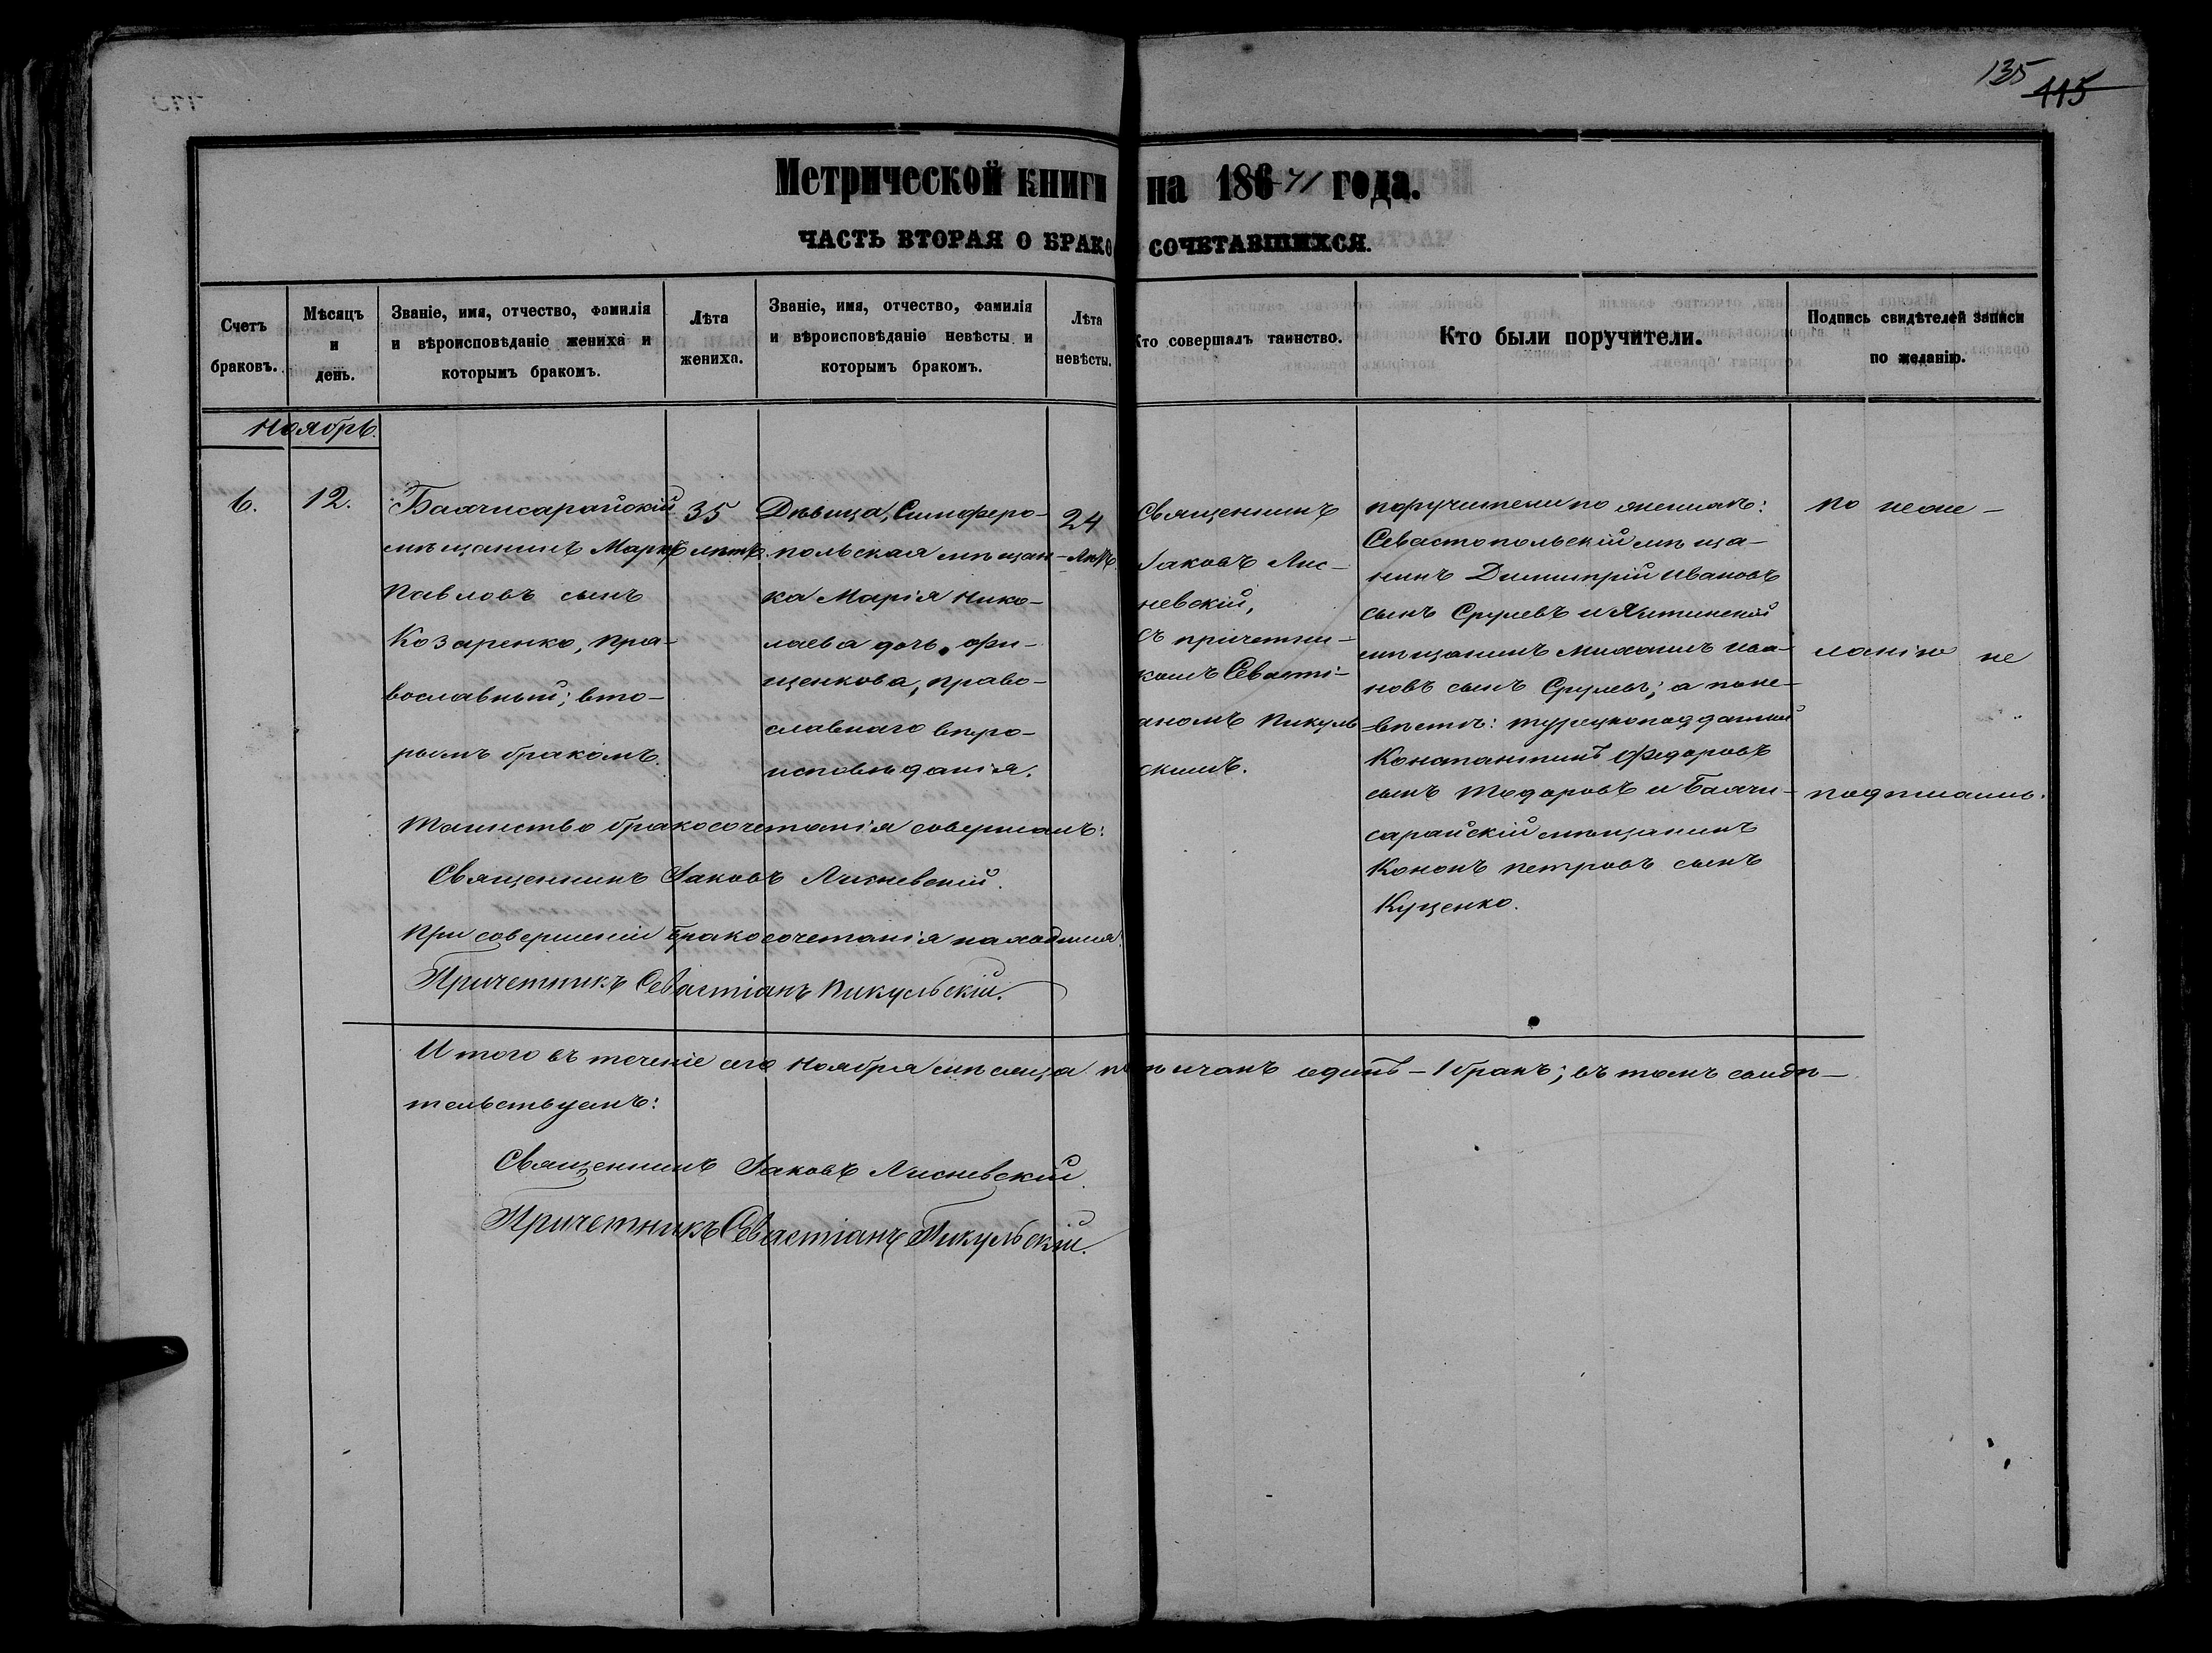 135
115
Метрической книги на 18671 года.
ЧАСТЬ ВТОРАЯ О БРАКОСОЧЕТАВШИХСЯ.
Счетъ браковъ.
Мѣсяцъ и день.
Званіе, имя, отчество, фамилія и вѣроисповѣданіе жениха и которымъ бракомъ.
Лѣта жениха.
Званіе, имя, отчество, фамилія и вѣроисповѣданіе невѣсты и которымъ бракомъ.
Лѣта невѣсты.
Кто совершалъ таинство.
Кто были поручители.
Подпись свидѣтелей записи по желанію.
Ноябрь.
6.
12.
Бахчисарайскій
мѣщанинъ Маркъ
Павловъ сынъ
Козаренко, пра-
вославный; вто-
рымъ бракомъ.
35
лѣтъ.
Дѣвица, Симферо-
польская мѣщан-
ка Марія Нико-
лаева дочь Фи-
щенкова, право-
славнаго вѣро-
исповѣданія.
24
лѣтъ
Священникъ
Іаковъ Лис-
невскій,
съ причетни-
комъ Севасті-
аномъ Пикуль
скимъ.
поручители по женихѣ:
Севастопольскій мѣща-
нинъ Димитрій Ивановъ
сынъ Срулевъ и Ялтинскій
мѣщанинъ Михаилъ Ива-
новъ сынъ Срулевъ; а по не-
вѣстѣ: турецкоподданный
Константинъ Федоровъ
сынъ Тодоровъ и Бахчи-
сарайскій мѣщанинъ
Кононъ Петровъ сынъ
Куценко.
По неже-
ланію не
подписались.
Таинство бракосочетанія совершалъ:
Священникъ Іаковъ Лисневскій.
При совершеніи бракосочетанія находился:
Причетникъ Севастіанъ Пикульскій.
Итого въ теченіе сего Ноября мѣсяца повѣнчанъ одинъ – 1 бракъ; въ томъ свидѣ-
тельствуемъ:
Священникъ Іаковъ Лисневскій
Причетникъ Севастіанъ Пикульскій.